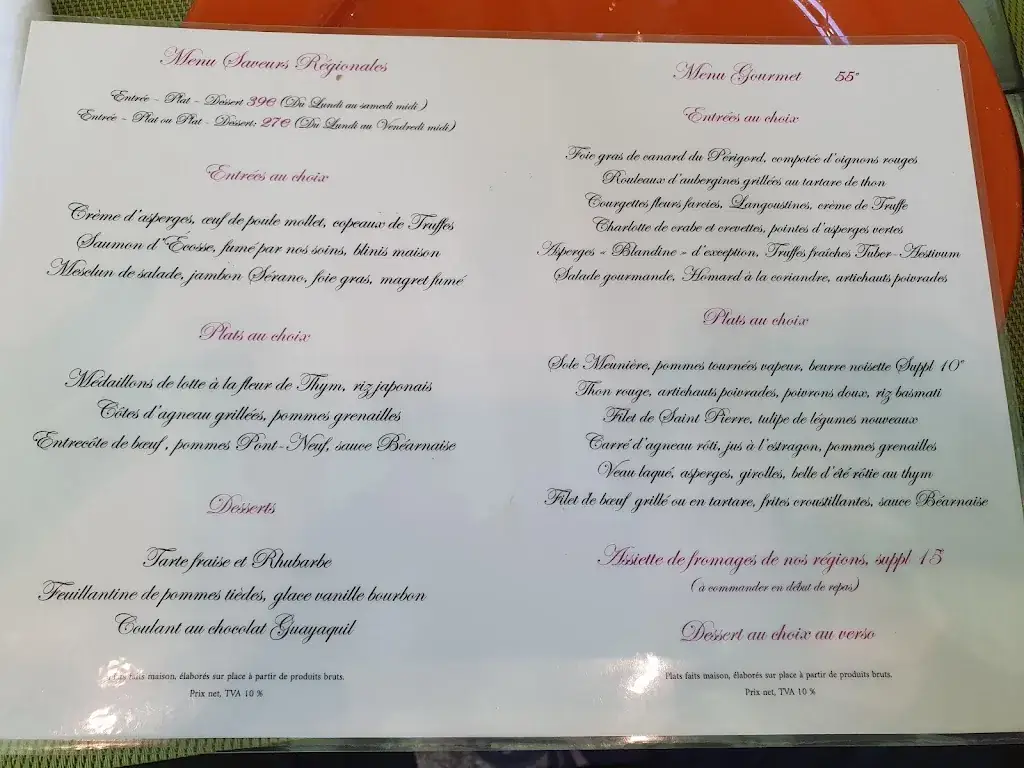 Menu Saveurs Régionales
Entrée - Plat - Dessert 39€ (Du Lundi au samedi midi )
Entrée - Plat ou Plat - Dessert: 27€ (Du Lundi au Vendredi midi)
Entrées au choix
Crème d'asperges, œuf de poule mollet, copeaux de Truffes
Saumon d'Ecosse, fumé par nos soins, blinis maison
Mesclun de salade, jambon Sérano, foie gras, magret fumé
Plats au choix
Médaillons de lotte à la fleur de Thym, riz japonais
Côtes d'agneau grillées, pommes grenailles
Entrecôte de bœuf, pommes Pont-Neuf, sauce Béarnaise
Desserts
Tarte fraise et Rhubarbe
Feuillantine de pommes tièdes, glace vanille bourbon
Coulant au chocolat Guayaquil
Plats faits maison, élaborés sur place à partir de produits bruts.
Prix net, TVA 10 %
Menu Gourmet 55€
Entrées au choix
Foie gras de canard du Périgord, compotée d'oignons rouges
Rouleaux d'aubergines grillées au tartare de thon
Courgettes fleurs farcies, Langoustines, crème de Truffe
Charlotte de crabe et crevettes, pointes d'asperges vertes
Asperges « Blandine » d'exception, Truffes fraîches Tuber-Aestivum
Salade gourmande, Homard à la coriandre, artichauts poivrades
Plats au choix
Sole Meunière, pommes tournées vapeur, beurre noisette Suppl 10€
Thon rouge, artichauts poivrades, poivrons doux, riz basmati
Filet de Saint Pierre, tulipe de légumes nouveaux
Carré d'agneau rôti, jus à l'estragon, pommes grenailles
Veau laqué, asperges, girolles, belle d'été rôtie au thym
Filet de bœuf grillé ou en tartare, frites croustillantes, sauce Béarnaise
Assiette de fromages de nos régions, suppl 15
(à commander en début de repas)
Dessert au choix au verso
Plats faits maison, élaborés sur place à partir de produits bruts.
Prix net, TVA 10 %